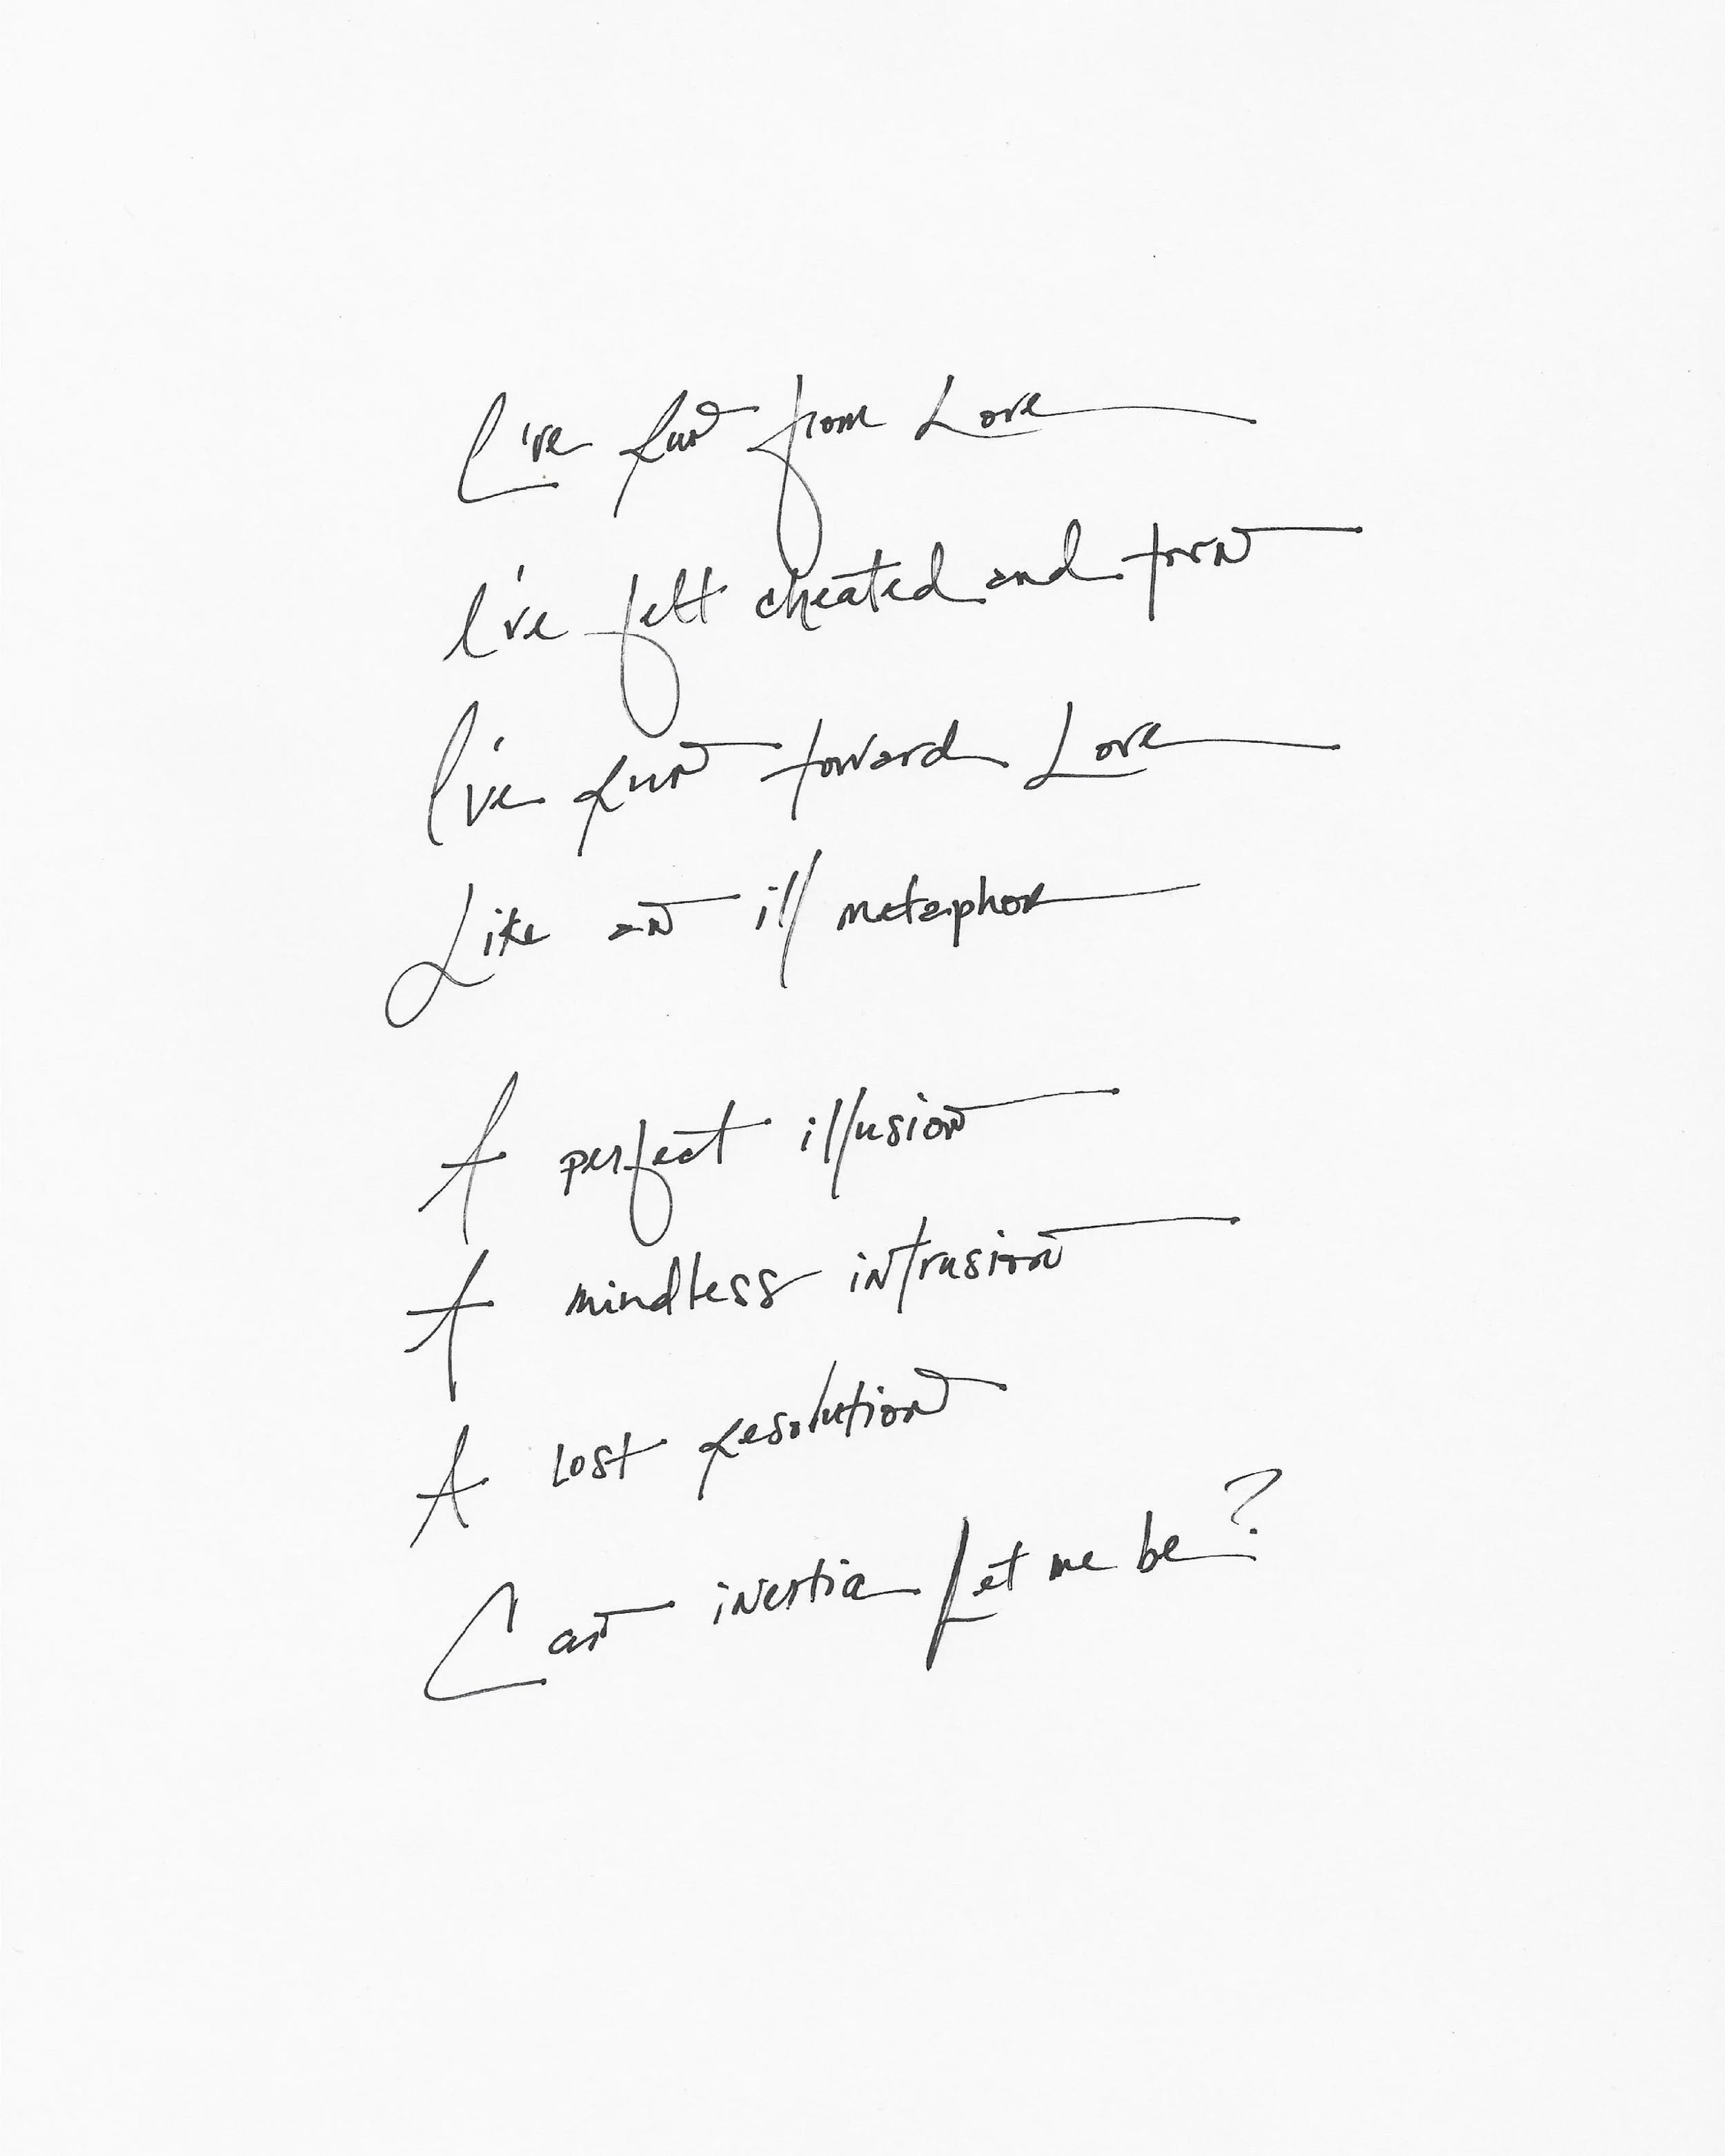 I've run from Love
I've felt cheated and torn
I've run toward Love
Like an ill metaphor
A perfect illusion
A mindless intrusion
A lost resolution
Can inertia Let me be?